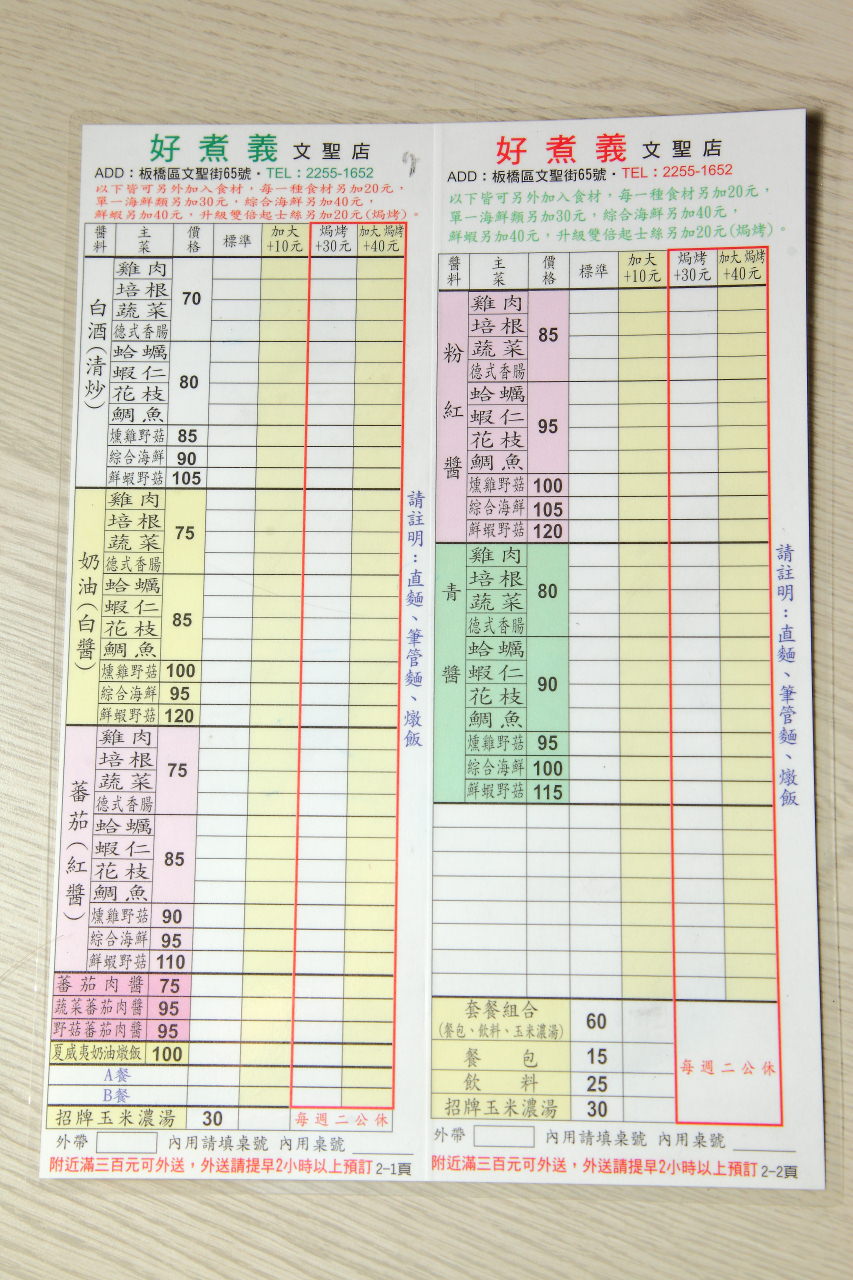 好煮義 文聖店
ADD：板橋區文聖街65號・TEL：2255-1652
以下皆可另外加入食材，每一種食材另加20元，
單一海鮮類另加30元，綜合海鮮另加40元，
鮮蝦另加40元，升級雙倍起士絲另加20元(焗烤)。
醬料 主菜 價格 標準 加大+10元 焗烤+30元 加大焗烤+40元
白酒(清炒)
雞肉
培根 70
蔬菜
德式香腸
蛤蠣
蝦仁 80
花枝
鯛魚
燻雞野菇 85
綜合海鮮 90
鮮蝦野菇 105
奶油(白醬)
雞肉
培根 75
蔬菜
德式香腸
蛤蠣
蝦仁
花枝 85
鯛魚
燻雞野菇 100
綜合海鮮 95
鮮蝦野菇 120
蕃茄(紅醬)
雞肉
培根 75
蔬菜
德式香腸
蛤蠣
蝦仁 85
花枝
鯛魚
燻雞野菇 90
綜合海鮮 95
鮮蝦野菇 110
蕃茄肉醬 75
蔬菜蕃茄肉醬 95
野菇蕃茄肉醬 95
夏威夷奶油燉飯 100
A餐
B餐
招牌玉米濃湯 30 每週二公休
外帶 內用請填桌號 內用桌號
附近滿三百元可外送，外送請提早2小時以上預訂 2-1頁
請註明：直麵、筆管麵、燉飯
好煮義 文聖店
ADD：板橋區文聖街65號・TEL：2255-1652
以下皆可另外加入食材，每一種食材另加20元，
單一海鮮類另加30元，綜合海鮮另加40元，
鮮蝦另加40元，升級雙倍起士絲另加20元(焗烤)。
醬料 主菜 價格 標準 加大+10元 焗烤+30元 加大焗烤+40元
粉紅醬
雞肉
培根 85
蔬菜
德式香腸
蛤蠣
蝦仁 95
花枝
鯛魚
燻雞野菇 100
綜合海鮮 105
鮮蝦野菇 120
青醬
雞肉
培根 80
蔬菜
德式香腸
蛤蠣
蝦仁 90
花枝
鯛魚
燻雞野菇 95
綜合海鮮 100
鮮蝦野菇 115
套餐組合 60
(餐包、飲料、玉米濃湯)
餐包 15
飲料 25
招牌玉米濃湯 30
每週二公休
外帶 內用請填桌號 內用桌號
附近滿三百元可外送，外送請提早2小時以上預訂 2-2頁
請註明：直麵、筆管麵、燉飯